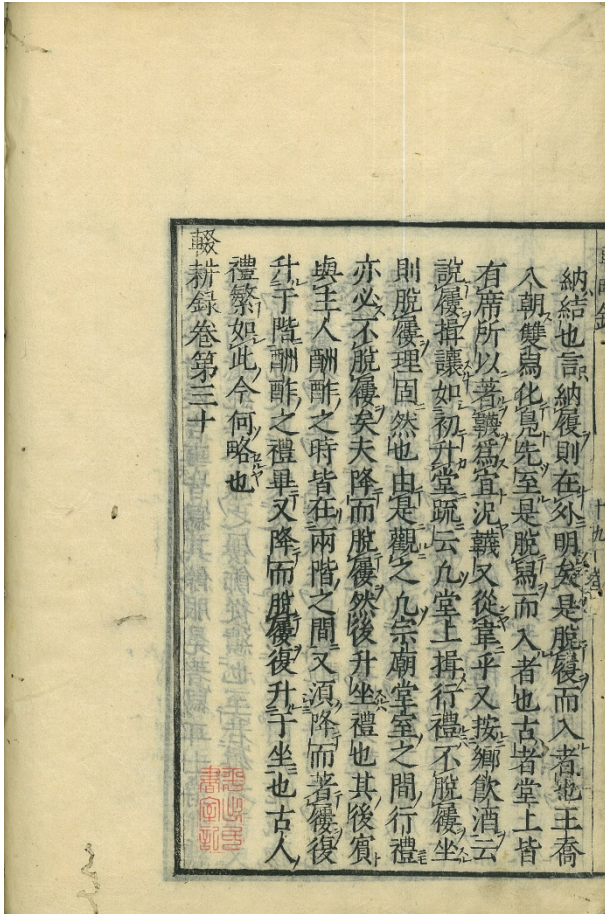 納結也言納履則在外明矣是脫履而入者也王喬
入朝雙舄化鳬先室是脫舄而入者也古者堂上皆
有席所以著韈爲宜況韈又從韋乎又按鄉飲酒云
說屨揖讓如初升堂疏云凡堂上揖行禮不脫屨坐
則脫屨理固然也由是觀之凡宗廟堂室之間行禮
亦必不脫屨矣夫降而脫屨然後升坐禮也其後賓
與主人酬酢之時皆在兩階之間又須降而著屨復
升于階酬酢之禮畢又降而脫屨復升于坐也古人
禮繁如此今何略也
輟耕録卷第三十